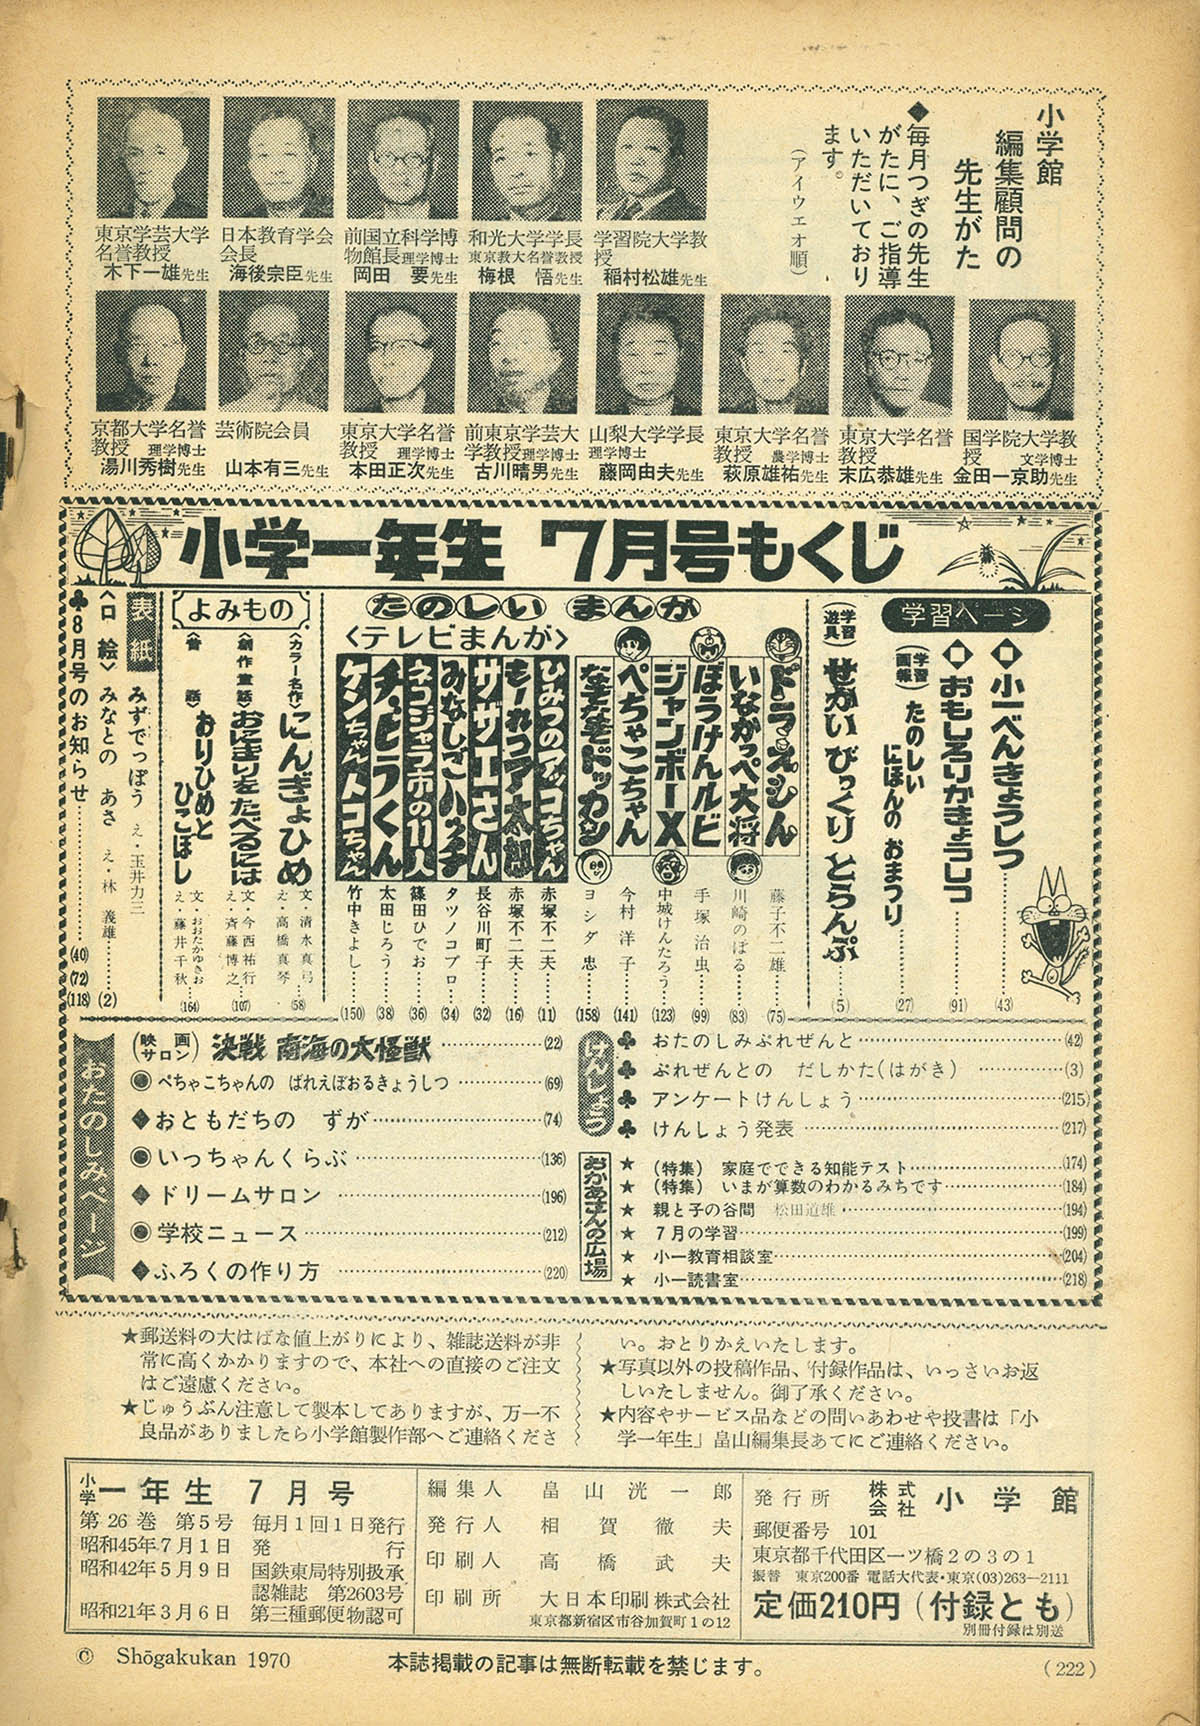 小学館
編集顧問の
先生がた
◆毎月つぎの先生
がたに、ご指導
いただいており
ます。
(アイウエオ順)
学習院大学教授
稲村松雄先生
和光大学学長
東京教大名誉教授
梅根 悟先生
前国立科学博物館長 理学博士
岡田 要先生
日本教育学会会長
海後宗臣先生
東京学芸大学名誉教授
木下一雄先生
国学院大学教授 文学博士
金田一京助先生
東京大学名誉教授
末広恭雄先生
東京大学名誉教授 農学博士
萩原雄祐先生
山梨大学学長
理学博士
藤岡由夫先生
前東京学芸大学教授 理学博士
古川晴男先生
東京大学名誉教授 理学博士
本田正次先生
芸術院会員
山本有三先生
京都大学名誉教授 理学博士
湯川秀樹先生
小学一年生 7月号もくじ
学習ページ
■小一べんきょうしつ…(43)
■おもしろりかきょうしつ…(91)
(学習画報) たのしい にほんの おまつり…(27)
(学習遊具) せかい びっくり とらんぷ…(5)
たのしい まんが
ドラマえじん 藤子不二雄…(75)
いなかっぺ大将 川崎のぼる…(83)
ぼうけんルビ 手塚治虫…(99)
ジャンボーX 中城けんたろう…(123)
ぺちゃこちゃん 今村洋子…(141)
なぞなぞドッカン ヨシダ忠…(158)
<テレビまんが>
ひみつのアッコちゃん 赤塚不二夫…(11)
もーれつア太郎 赤塚不二夫…(16)
サザエさん 長谷川町子…(32)
みなしごハッチ タツノコプロ…(34)
ネコジャラ市の11人 篠田ひでお…(36)
チビラくん 太田じろう…(38)
ケンちゃんトコちゃん 竹中きよし…(150)
よみもの
<カラー名作> にんぎょひめ 文・清水真弓 え・高橋真琴…(58)
<創作童話> おにぎりを たべるには 文・今西祐行 え・斉藤博之…(107)
<昔話> おりひめと ひこぼし 文・おおたかゆきお え・藤井千秋…(164)
表紙 みずでっぽう え・玉井力三
<口絵> みなとの あさ え・林 義雄…(2)
♣8月号のお知らせ…(40)(72)(118)
おたのしみページ
(映画サロン) 決戦 南海の大怪獣…(22)
◉ぺちゃこちゃんの ばれえぼおるきょうしつ…(69)
◆おともだちの ずが…(74)
◉いっちゃんくらぶ…(136)
◆ドリームサロン…(196)
◉学校ニュース…(212)
◆ふろくの作り方…(220)
けんしょう
♣おたのしみぷれぜんと…(42)
♣ぷれぜんとの だしかた(はがき)…(3)
♣アンケートけんしょう…(215)
♣けんしょう発表…(217)
おかあさんの広場
★(特集) 家庭でできる知能テスト…(174)
★(特集) いまが算数のわかるみちです…(184)
★親と子の谷間 松田道雄…(194)
★7月の学習…(199)
★小一教育相談室…(204)
★小一読書室…(218)
★郵送料の大はばな値上がりにより、雑誌送料が非
常に高くかかりますので、本社への直接のご注文
はご遠慮ください。
★じゅうぶん注意して製本してありますが、万一不
良品がありましたら小学館製作部へご連絡くださ
い。おとりかえいたします。
★写真以外の投稿作品、付録作品は、いっさいお返
しいたしません。御了承ください。
★内容やサービス品などの問いあわせや投書は「小
学一年生」畠山編集長あてにご連絡ください。
小学一年生 7月号
第26巻 第5号 毎月1回1日発行
昭和45年7月1日 発行
昭和42年5月9日 国鉄東局特別扱承
認雑誌 第2603号
昭和21年3月6日 第三種郵便物認可
編集人 畠山滉一郎
発行人 相賀徹夫
印刷人 高橋武夫
印刷所 大日本印刷株式会社
東京都新宿区市谷加賀町1の12
発行所 株式会社 小学館
郵便番号 101
東京都千代田区一ツ橋2の3の1
振替 東京200番 電話大代表・東京(03)263―2111
定価210円(付録とも)
別冊付録は別送
© Shōgakukan 1970
本誌掲載の記事は無断転載を禁じます。
(222)